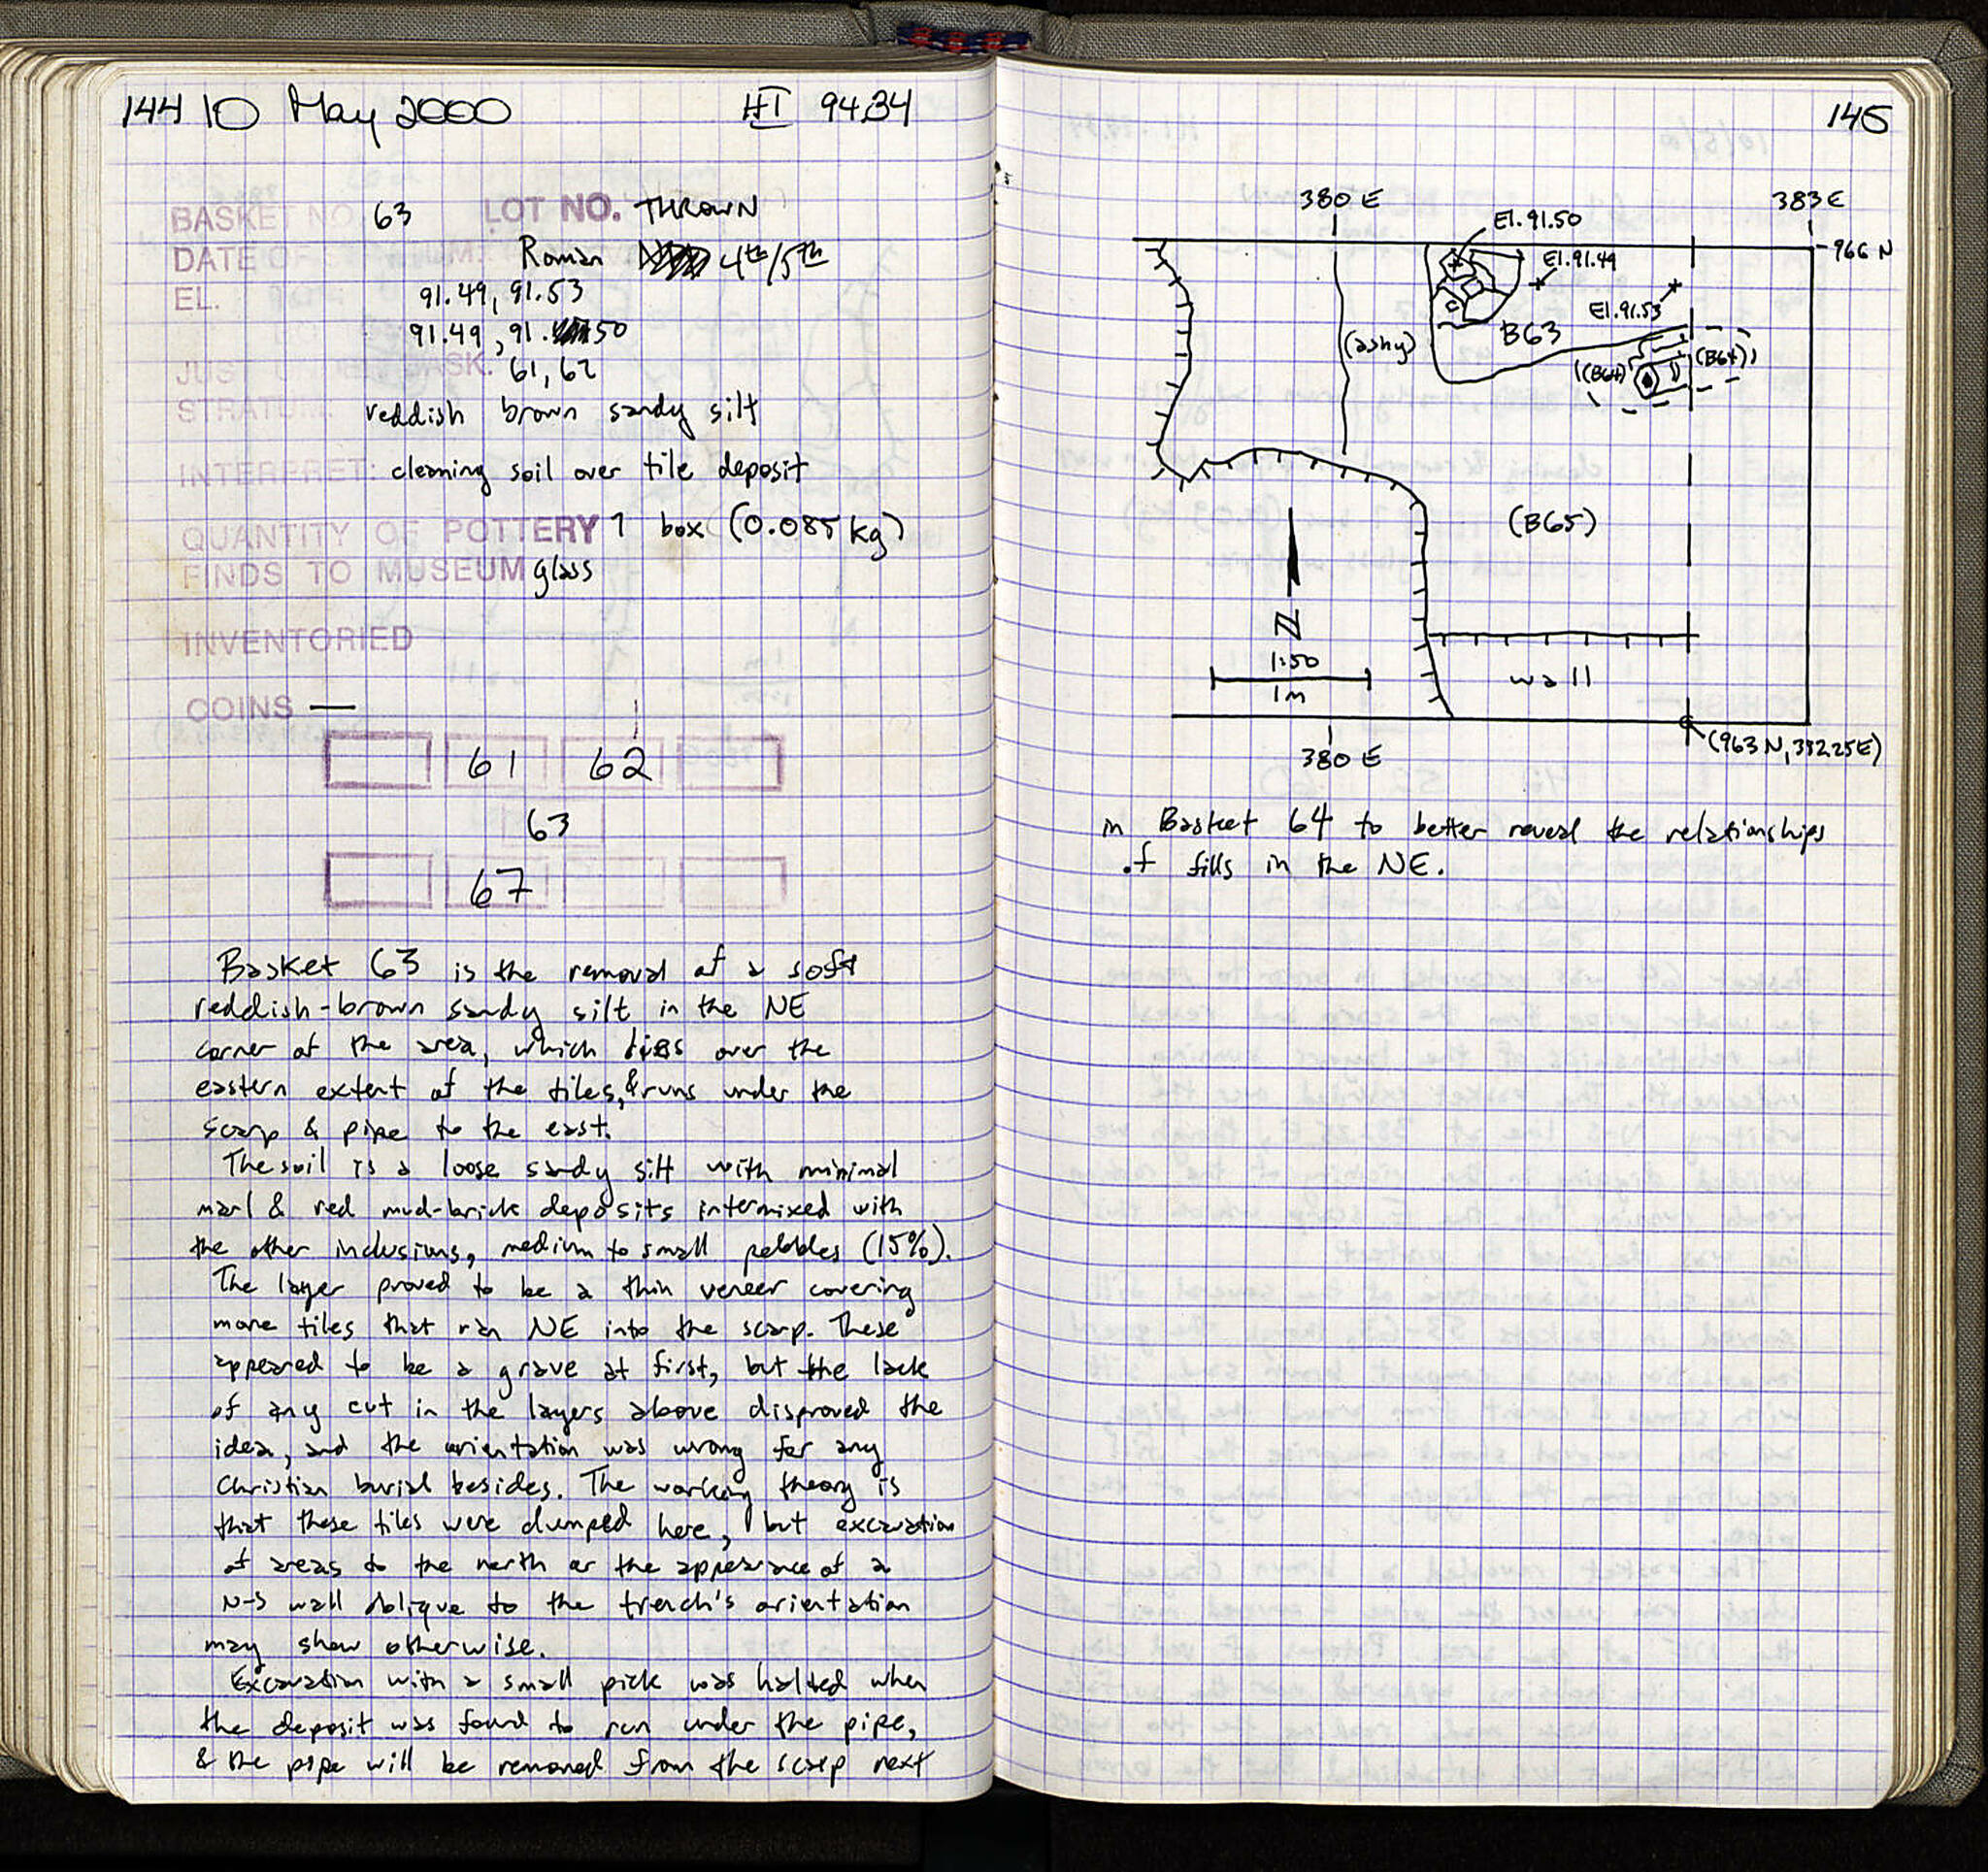 144 10 May 2000 HI 94.34
BASKET NO. 63 LOT NO. THROWN
DATE OF Roman 4th/5th
EL. 91.49, 91.53
91.49, 91.50
JUST UNDER BASK. 61, 62
STRATUM: reddish brown sandy silt
INTERPRET: cleaning soil over tile deposit
QUANTITY OF POTTERY 1 box (0.085 kg)
FINDS TO MUSEUM glass
INVENTORIED
COINS —
61 62
63
67
Basket 63 is the removal of a soft
reddish-brown sandy silt in the NE
corner of the area, which lies over the
eastern extent of the tiles, & runs under the
scarp & pipe to the east.
The soil is a loose sandy silt with minimal
marl & red mud-brick deposits intermixed with
the other inclusions, medium to small pebbles (15%).
The layer proved to be a thin veneer covering
more tiles that ran NE into the scarp. These
appeared to be a grave at first, but the lack
of any cut in the layers above disproved the
idea, and the orientation was wrong for any
Christian burial besides. The working theory is
that these tiles were dumped here, but excavation
of areas to the north or the appearance of a
N-S wall oblique to the trench's orientation
may show otherwise.
Excavation with a small pick was halted when
the deposit was found to run under the pipe,
& the pipe will be removed from the scarp next
145
380 E 383 E
El. 91.50
966 N
El. 91.49
El. 91.53
(ashy) B63
(B64) (B64)
(B65)
N
1:50
1m
wall
380 E
(963 N, 382.25 E)
in Basket 64 to better reveal the relationships
of fills in the NE.